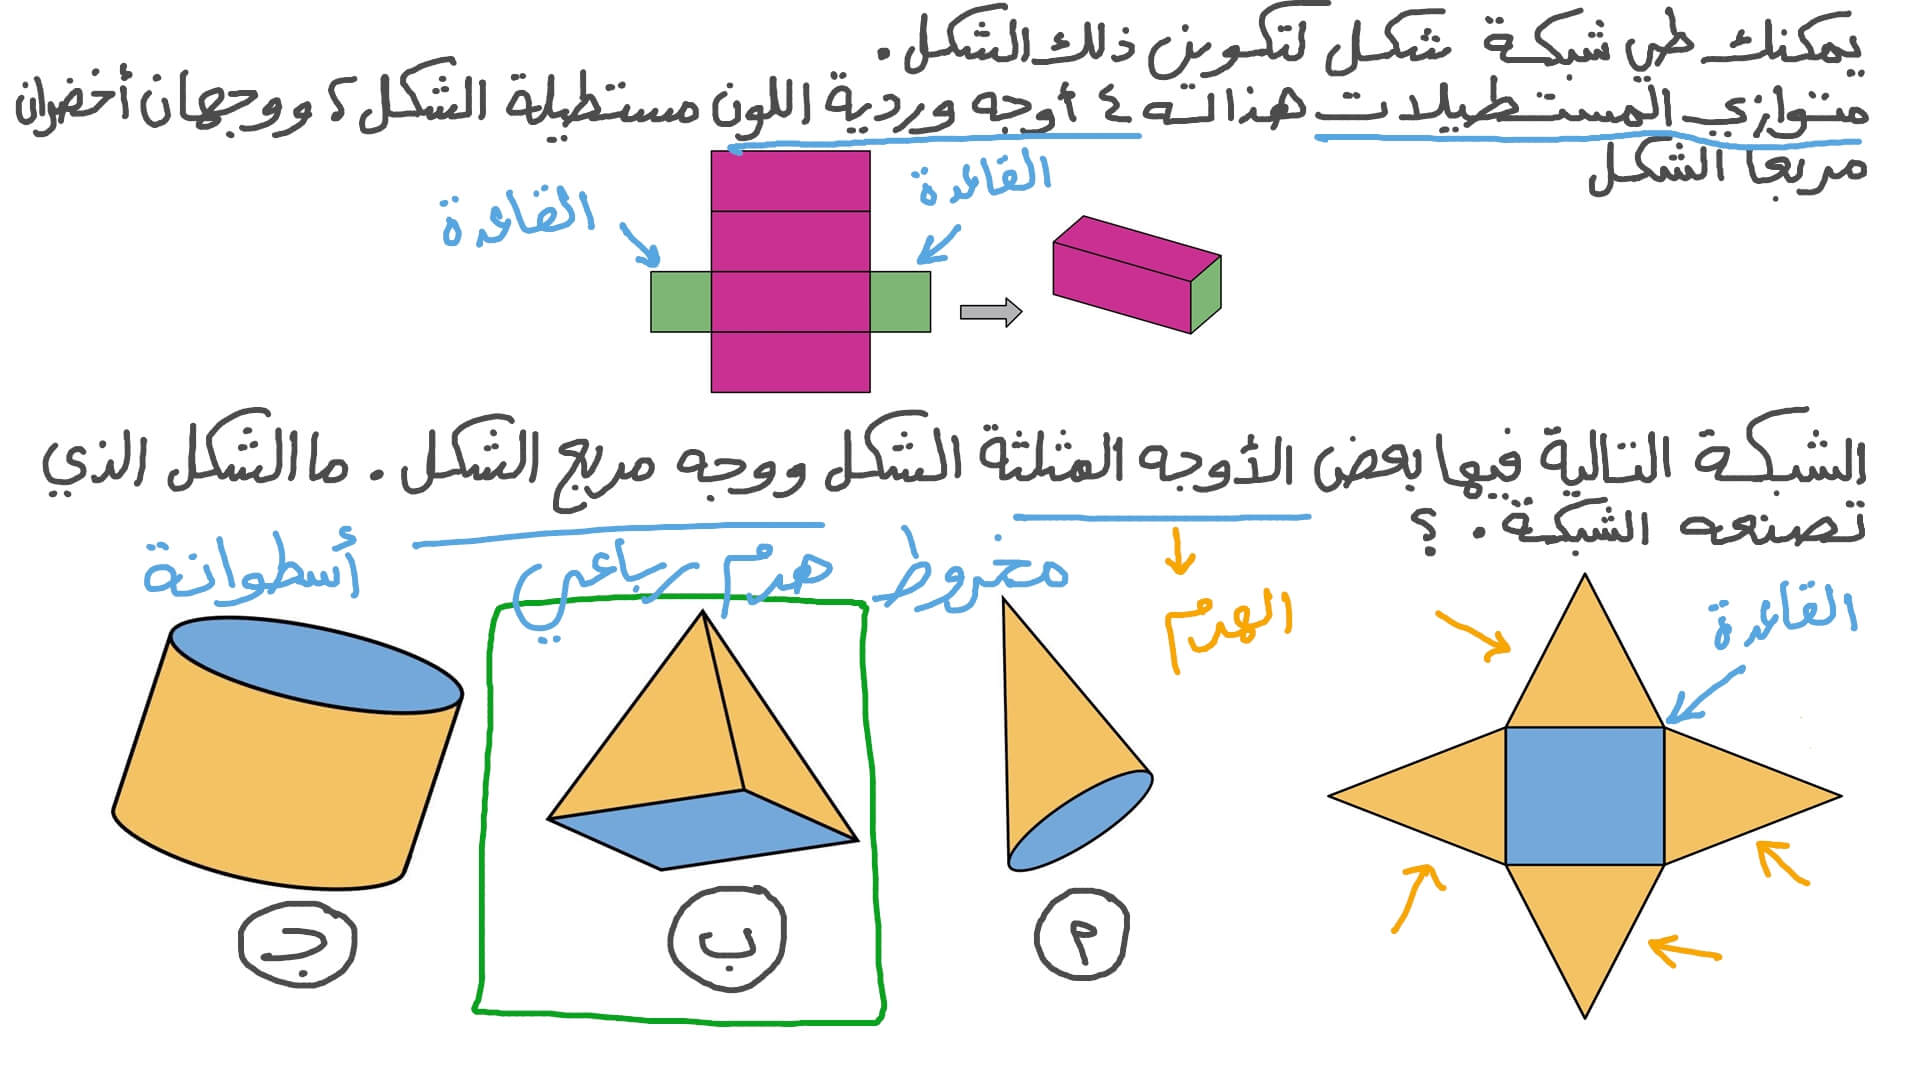 يمكنك طي شبكة شكل لتكوين ذلك الشكل.
متوازي المستطيلات هذا له ٤ أوجه وردية اللون مستطيلة الشكل، ووجهان أخضران
مربعا الشكل
القاعدة
القاعدة
الشبكة التالية فيها بعض الأوجه المثلثة الشكل ووجه مربع الشكل. ما الشكل الذي
تصنعه الشبكة. ؟
مخروط
هرم رباعي
أسطوانة
الهرم
القاعدة
م
ب
ج